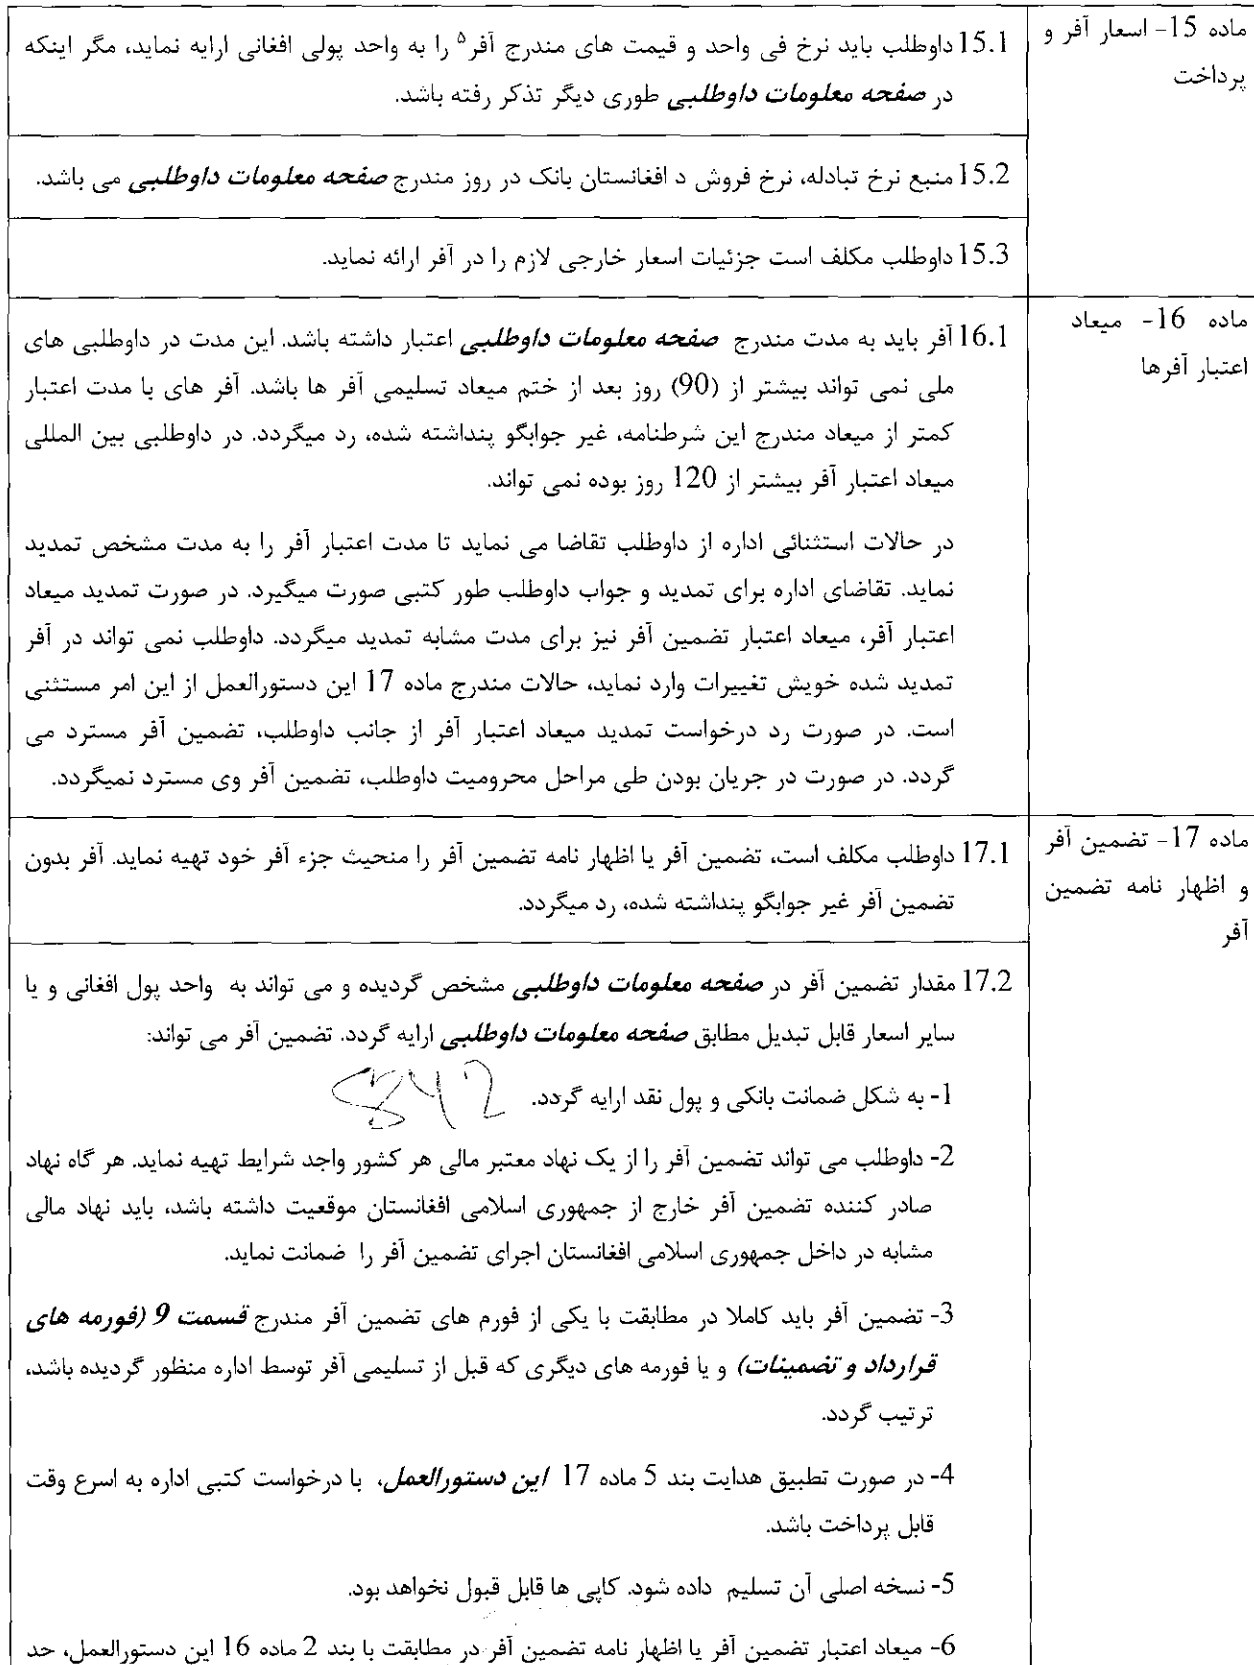 ماده 15- اسعار آفر و
پرداخت
15.1 داوطلب باید نرخ فی واحد و قیمت های مندرج آفر⁵ را به واحد پولی افغانی ارایه نماید، مگر اینکه
در صفحه معلومات داوطلبی طوری دیگر تذکر رفته باشد.
15.2 منبع نرخ تبادله، نرخ فروش د افغانستان بانک در روز مندرج صفحه معلومات داوطلبی می باشد.
15.3 داوطلب مکلف است جزئیات اسعار خارجی لازم را در آفر ارائه نماید.
ماده 16- میعاد
اعتبار آفرها
16.1 آفر باید به مدت مندرج صفحه معلومات داوطلبی اعتبار داشته باشد. این مدت در داوطلبی های
ملی نمی تواند بیشتر از (90) روز بعد از ختم میعاد تسلیمی آفر ها باشد. آفر های با مدت اعتبار
کمتر از میعاد مندرج این شرطنامه، غیر جوابگو پنداشته شده، رد میگردد. در داوطلبی بین المللی
میعاد اعتبار آفر بیشتر از 120 روز بوده نمی تواند.
در حالات استثنائی اداره از داوطلب تقاضا می نماید تا مدت اعتبار آفر را به مدت مشخص تمدید
نماید. تقاضای اداره برای تمدید و جواب داوطلب طور کتبی صورت میگیرد. در صورت تمدید میعاد
اعتبار آفر، میعاد اعتبار تضمین آفر نیز برای مدت مشابه تمدید میگردد. داوطلب نمی تواند در آفر
تمدید شده خویش تغییرات وارد نماید، حالات مندرج ماده 17 این دستورالعمل از این امر مستثنی
است. در صورت رد درخواست تمدید میعاد اعتبار آفر از جانب داوطلب، تضمین آفر مسترد می
گردد. در صورت در جریان بودن طی مراحل محرومیت داوطلب، تضمین آفر وی مسترد نمیگردد.
ماده 17- تضمین آفر
و اظهار نامه تضمین
آفر
17.1 داوطلب مکلف است، تضمین آفر یا اظهار نامه تضمین آفر را منحیث جزء آفر خود تهیه نماید. آفر بدون
تضمین آفر غیر جوابگو پنداشته شده، رد میگردد.
17.2 مقدار تضمین آفر در صفحه معلومات داوطلبی مشخص گردیده و می تواند به واحد پول افغانی و یا
سایر اسعار قابل تبدیل مطابق صفحه معلومات داوطلبی ارایه گردد. تضمین آفر می تواند:
1- به شکل ضمانت بانکی و پول نقد ارایه گردد.
2- داوطلب می تواند تضمین آفر را از یک نهاد معتبر مالی هر کشور واجد شرایط تهیه نماید. هر گاه نهاد
صادر کننده تضمین آفر خارج از جمهوری اسلامی افغانستان موقعیت داشته باشد، باید نهاد مالی
مشابه در داخل جمهوری اسلامی افغانستان اجرای تضمین آفر را ضمانت نماید.
3- تضمین آفر باید کاملا در مطابقت با یکی از فورم های تضمین آفر مندرج قسمت 9 (فورمه های
قرارداد و تضمینات) و یا فورمه های دیگری که قبل از تسلیمی آفر توسط اداره منظور گردیده باشد،
ترتیب گردد.
4- در صورت تطبیق هدایت بند 5 ماده 17 این دستورالعمل، با درخواست کتبی اداره به اسرع وقت
قابل پرداخت باشد.
5- نسخه اصلی آن تسلیم داده شود. کاپی ها قابل قبول نخواهد بود.
6- میعاد اعتبار تضمین آفر یا اظهار نامه تضمین آفر در مطابقت با بند 2 ماده 16 این دستورالعمل، حد